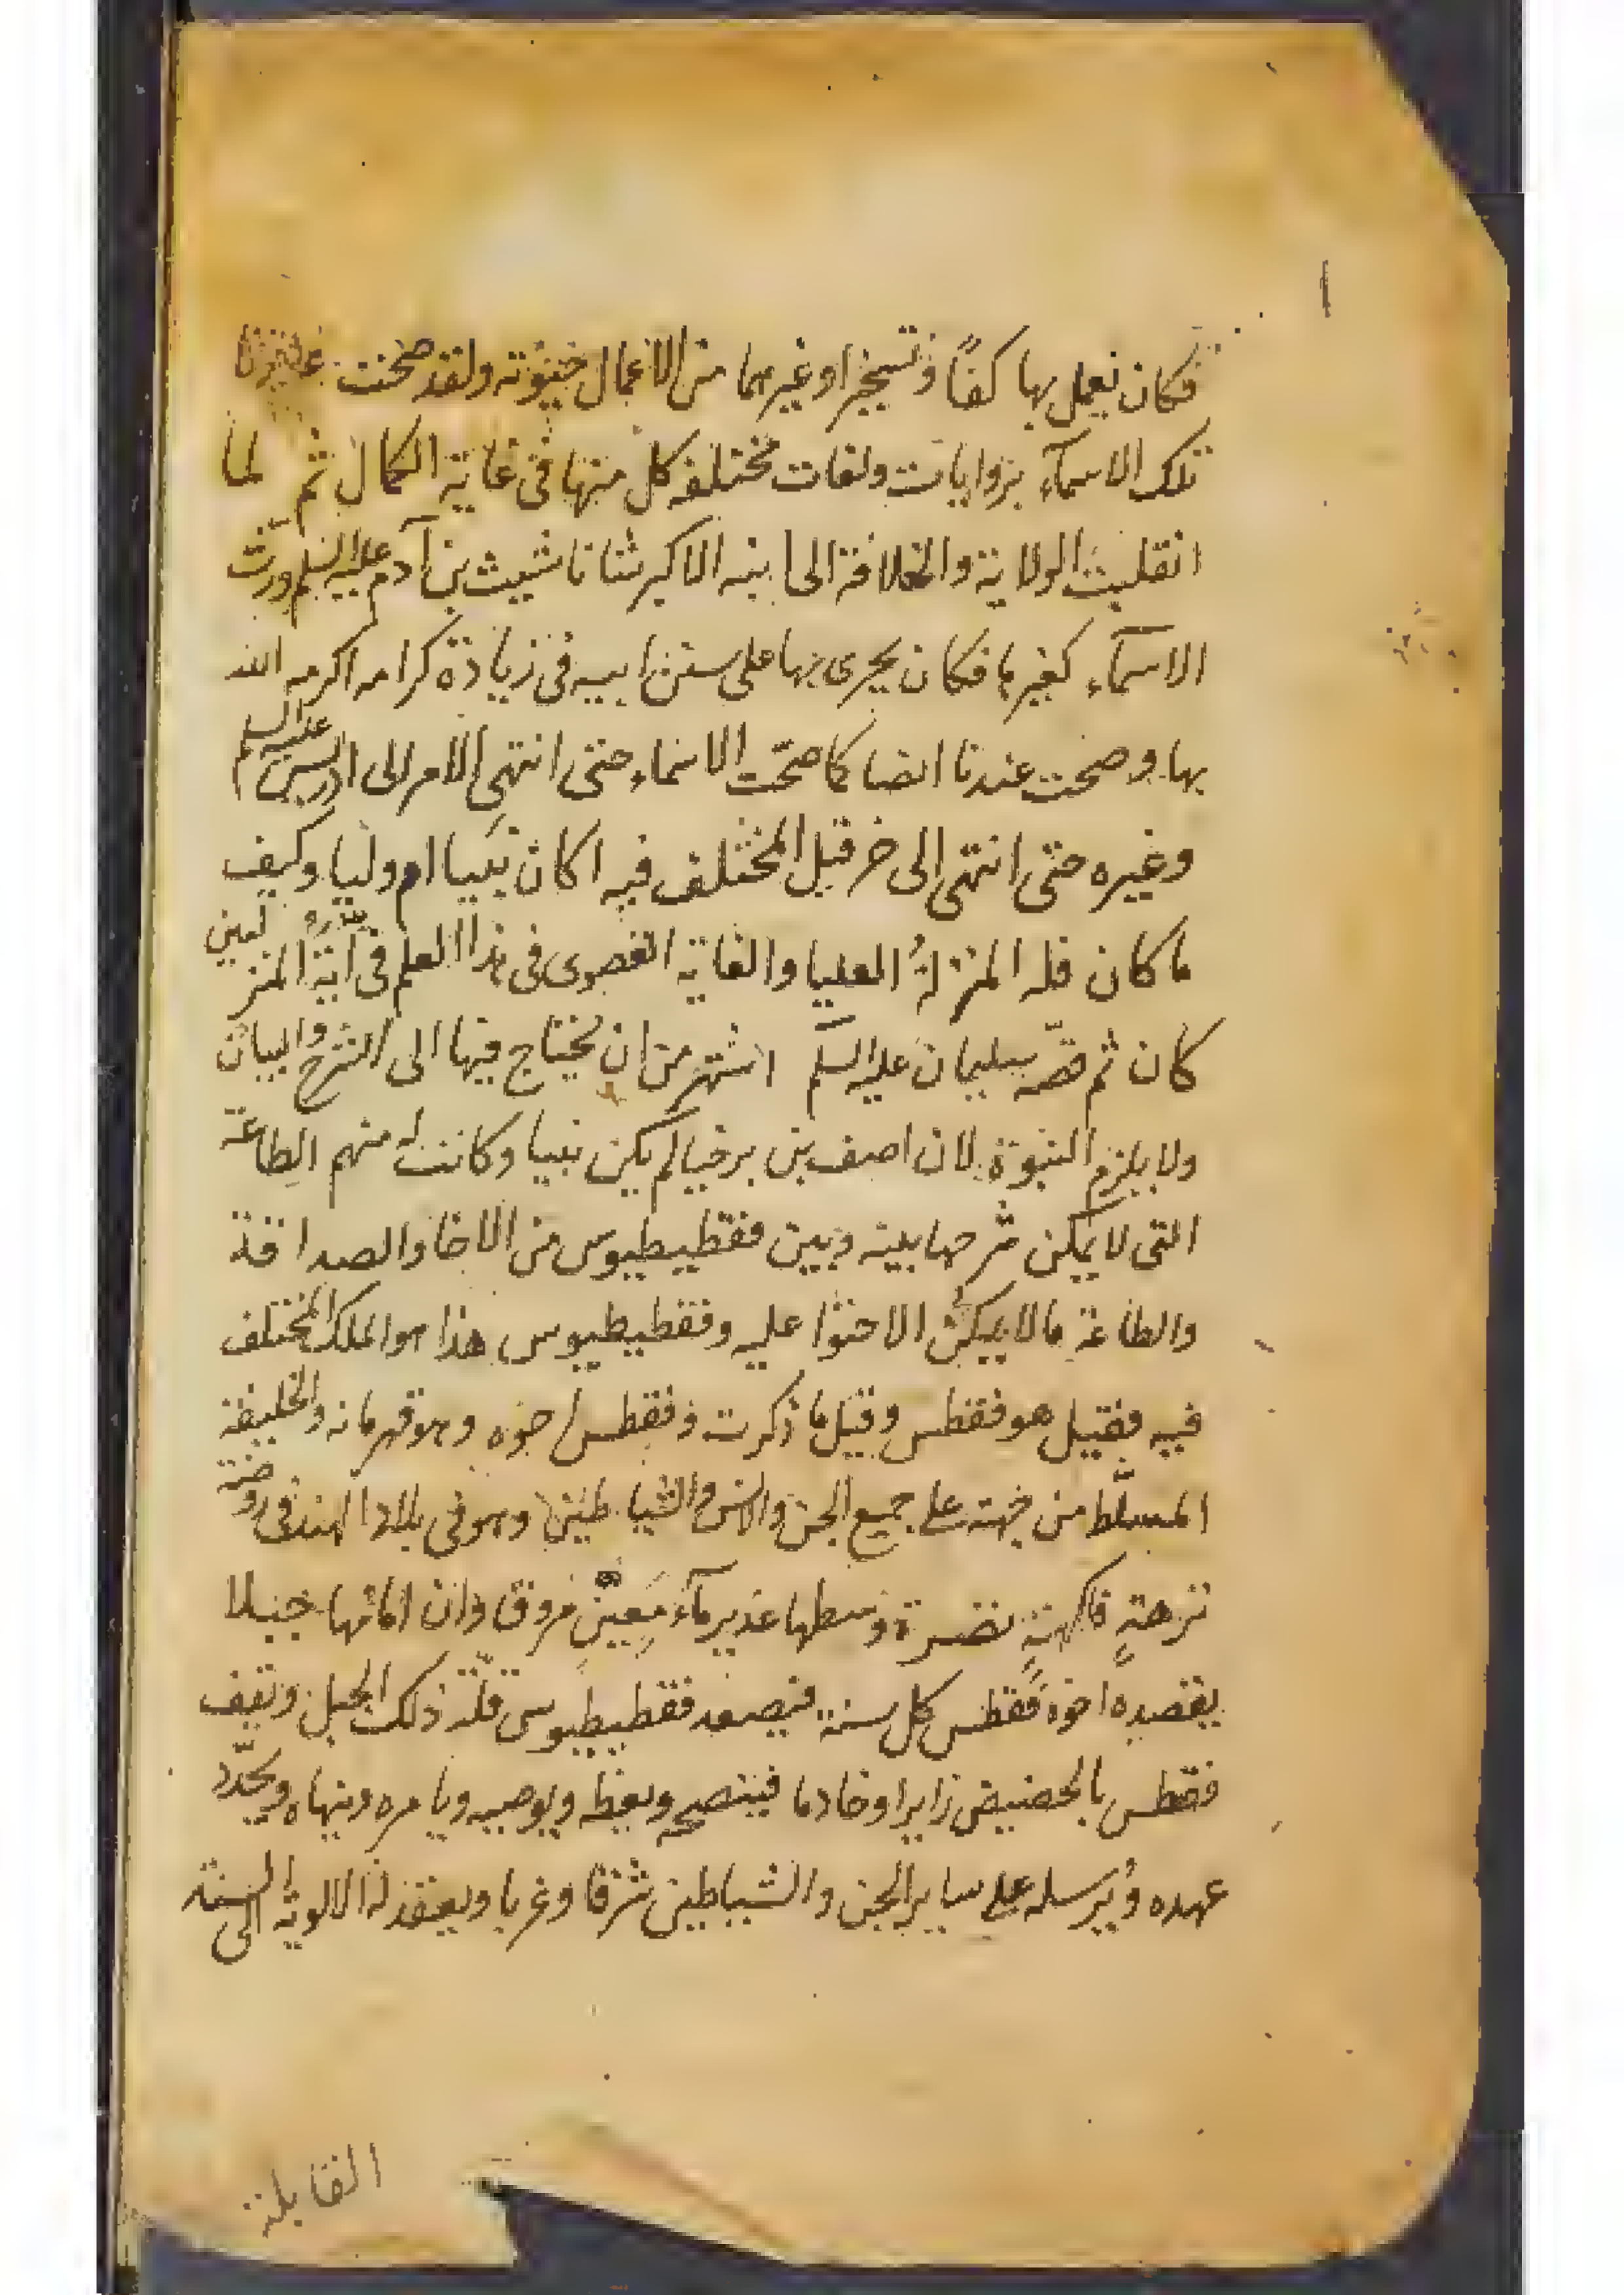 فكان يعمل بها كفا وتسخيرا وغيرهما من الاعمال ولقد صحت
تلك الاسمآء بروايات ولغات مختلفة كل منها فى غاية الكمال ثم لما
انقلبت الولاية والخلافة الى ابنه الاكبر شيث بن آدم عليه السلم ورث
الاسمآء كغيرها فكان يجرى بها على سنن ابيه فى زيادة كرامه اكرمه الله
بها وصحت عندنا ايضا كما صحت الاسماء حتى انتهى الامر الى ادريس عليه السلم
وغيره حتى انتهى الى خرقيل المختلف فيه اكان نبيا ام وليا وكيف
ما كان فله المنزلة العليا والغاية القصوى فى هذا العلم فى
كان ثم قصّة سليمان عليه السلم اشتهر من ان يحتاج فيها الى الشرح والبيان
ولا يلزم النبوة لان اصف بن برخيا لم يكن نبيا وكانت له منهم الطاعة
التى لا يمكن شرحها بينه وبين فقطيطيوس من الاخا والصداقة
والطاعة مالا يمكن الاحتوا عليه وفقطيطيوس هذا هو الملك المختلف
فيه فقيل هو فقطس وقيل ما ذكرت وفقطس اخوه وهو قهرمانه والخليفة
المسلّط من جهته على جميع الجن والانس والشياطين وهو فى بلاد الهند فى روضة
نزهةٍ فاكهةٍ نضرة وسطها غدير مآء مَعِينٍ مروق وان امامها جبلا
يقصده اخوه فقطس كل سنة فيصعد فقطيطيوس قلّة ذلك الجبل ويقف
فقطس بالحضيض زايرا وخادما فينصحه ويعظه ويوصيه ويامره وينهاه ويجدّد
عهده ويُرسله على ساير الجن والشياطين شرقا وغربا ويعقد له الالوية الى السنة
القابلة